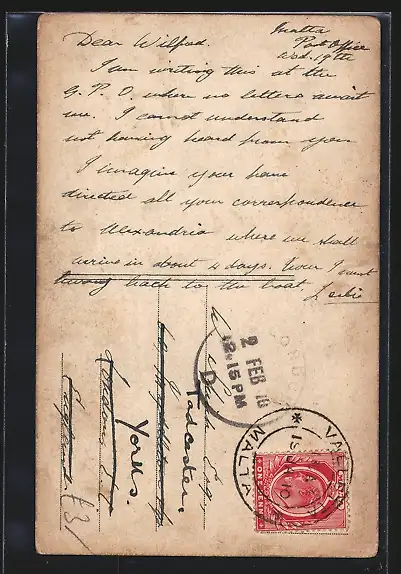 Malta
Post Office
Wed. 19th
Dear Wilfred.
I am writing this at the
G.P.O. where no letters await
me. I cannot understand
not having heard from you
I imagine your have
directed all your correspondence
to Alexandria where we shall
arrive in about 4 days. Now I must
hurry back to the boat Leslie
2 FEB 10
12.15 PM
D
Esq.
Tadcaster
Yorks.
London
England
VALLETTA
MALTA